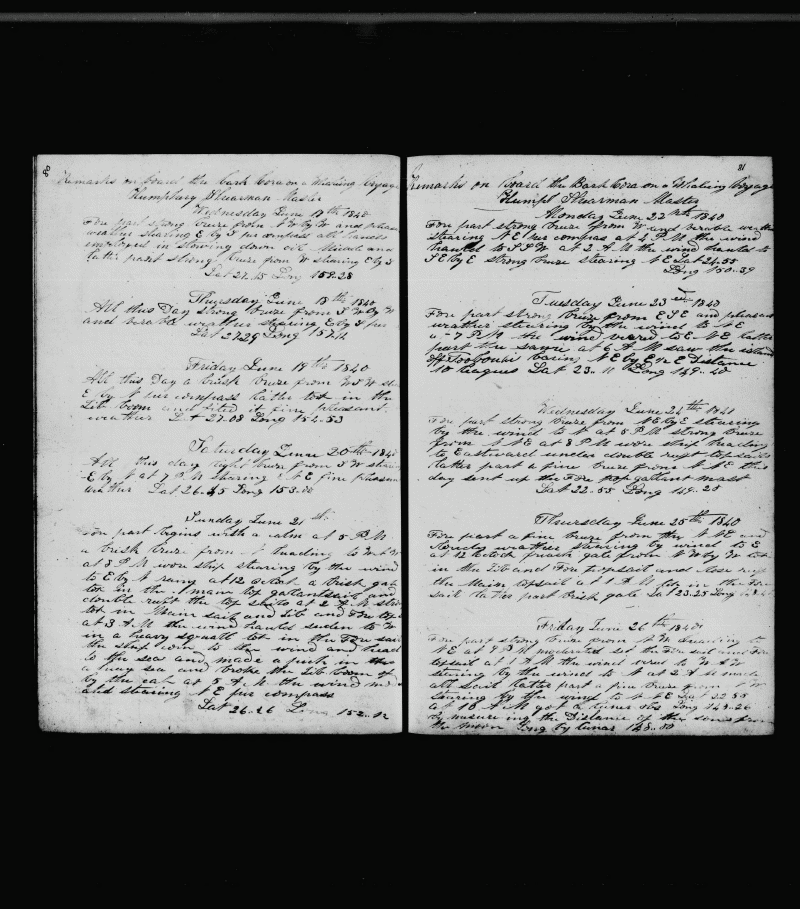 8
Remarks on board the bark Cora on a Whaling Voyage
Humphrey Shearman Master
Wednesday June 17th 1840
Fore part strong breeze from and pleasa
weather stearing E by S per compass all hands
imployed in stowing down oil Midale and
latter part strong breeze from stearing E by S
Lat 27..15 Long 159.28
Thursday June 18th 1840
All this Day strong breeze from by
and weather stearing E by S per
Lat 27.26 Long 157.
Friday June 19th 1840
All this Day a brisk breeze from W
E by per compass tot in the
Jib boom and it fine pleasant
weather Lat 27.08 Long 154.53
Saturday June 20th 1840
All this day light breeze from W stearin
E by at 7 P M stearing N E fine pleasan
weather Lat 26.45 Long 153.00
Sunday June 21st
Fore part begins with a calm at 5 P M
a brisk breeze from heading to
at 8 P M wore ship stearing by the wind
to E by N rainy at 12 oclock a brisk gale
tok in the mane top gallantsail and
double reeft the top sails at 2 A M
tok in Main sail and Jib and Fore top
at 3 A M the wind hauld to W
in a heavy squall tok in the Fore sail
the ship to the wind and head
to the sea and made a in
a sea and broke the Jib boom of
by the cap at 5 A M the wind
and stearing N E per compass
Lat 26..26 Long 152..12
81
Remarks on board the Bark Cora on a Whaling Voyage
Humph Shearman Master
Monday June 22nd 1840
Fore part strong breeze from W and weath
stearing N E per compas at 4 P M the wind
hauld to S S W at 2 A M the wind hauld to
S E by E strong breeze stearing N E Lat 24.55
Long 150..39
Tuesday June 23 1840
Fore part strong breeze from E S E and pleasant
weather stearing by the wind to N E
a 7 P M the wind veerd to E N E latter
part the same at 6 A M saw the island
of baring N E by E ½ E Distance
10 leagues Lat 23..11 Long 149..40
Wednesday June 24th 1840
Fore part strong breeze from N E by E stearing
by the wind to N at 5 P M strong breeze
from N N E at 8 P M wore ship heading
to Eastward under double reeft topsails
latter part a fine breeze from N N E this
day sent up the Fore top gallant mast
Lat 22..55 Long 149..25
Thursday June 25th 1840
Fore part a fine breeze from the N N E and
weather stearing by wind to E
at 12 oclock fresh gale from N W by W tok
in the Jib and Fore topsail and close reeft
the Main topsail at 1 A M tok in the Fore
sail latter part brisk gale Lat 23.25 Long
Friday June 26th 1840
Fore part strong breeze from N W heading to
N E at 9 P M moderated set the Fore sail and Fore
topsail at 1 A M the wind veerd to
stearing by the wind to N at 2 A M made
all sail latter part a fine breeze from
stearing by the wind to N N E Lat 22.58
at 10 A M got 2 luner obs Long 148..26
by measureing the Distance of the sone from
the moon Long by lunar 148..00